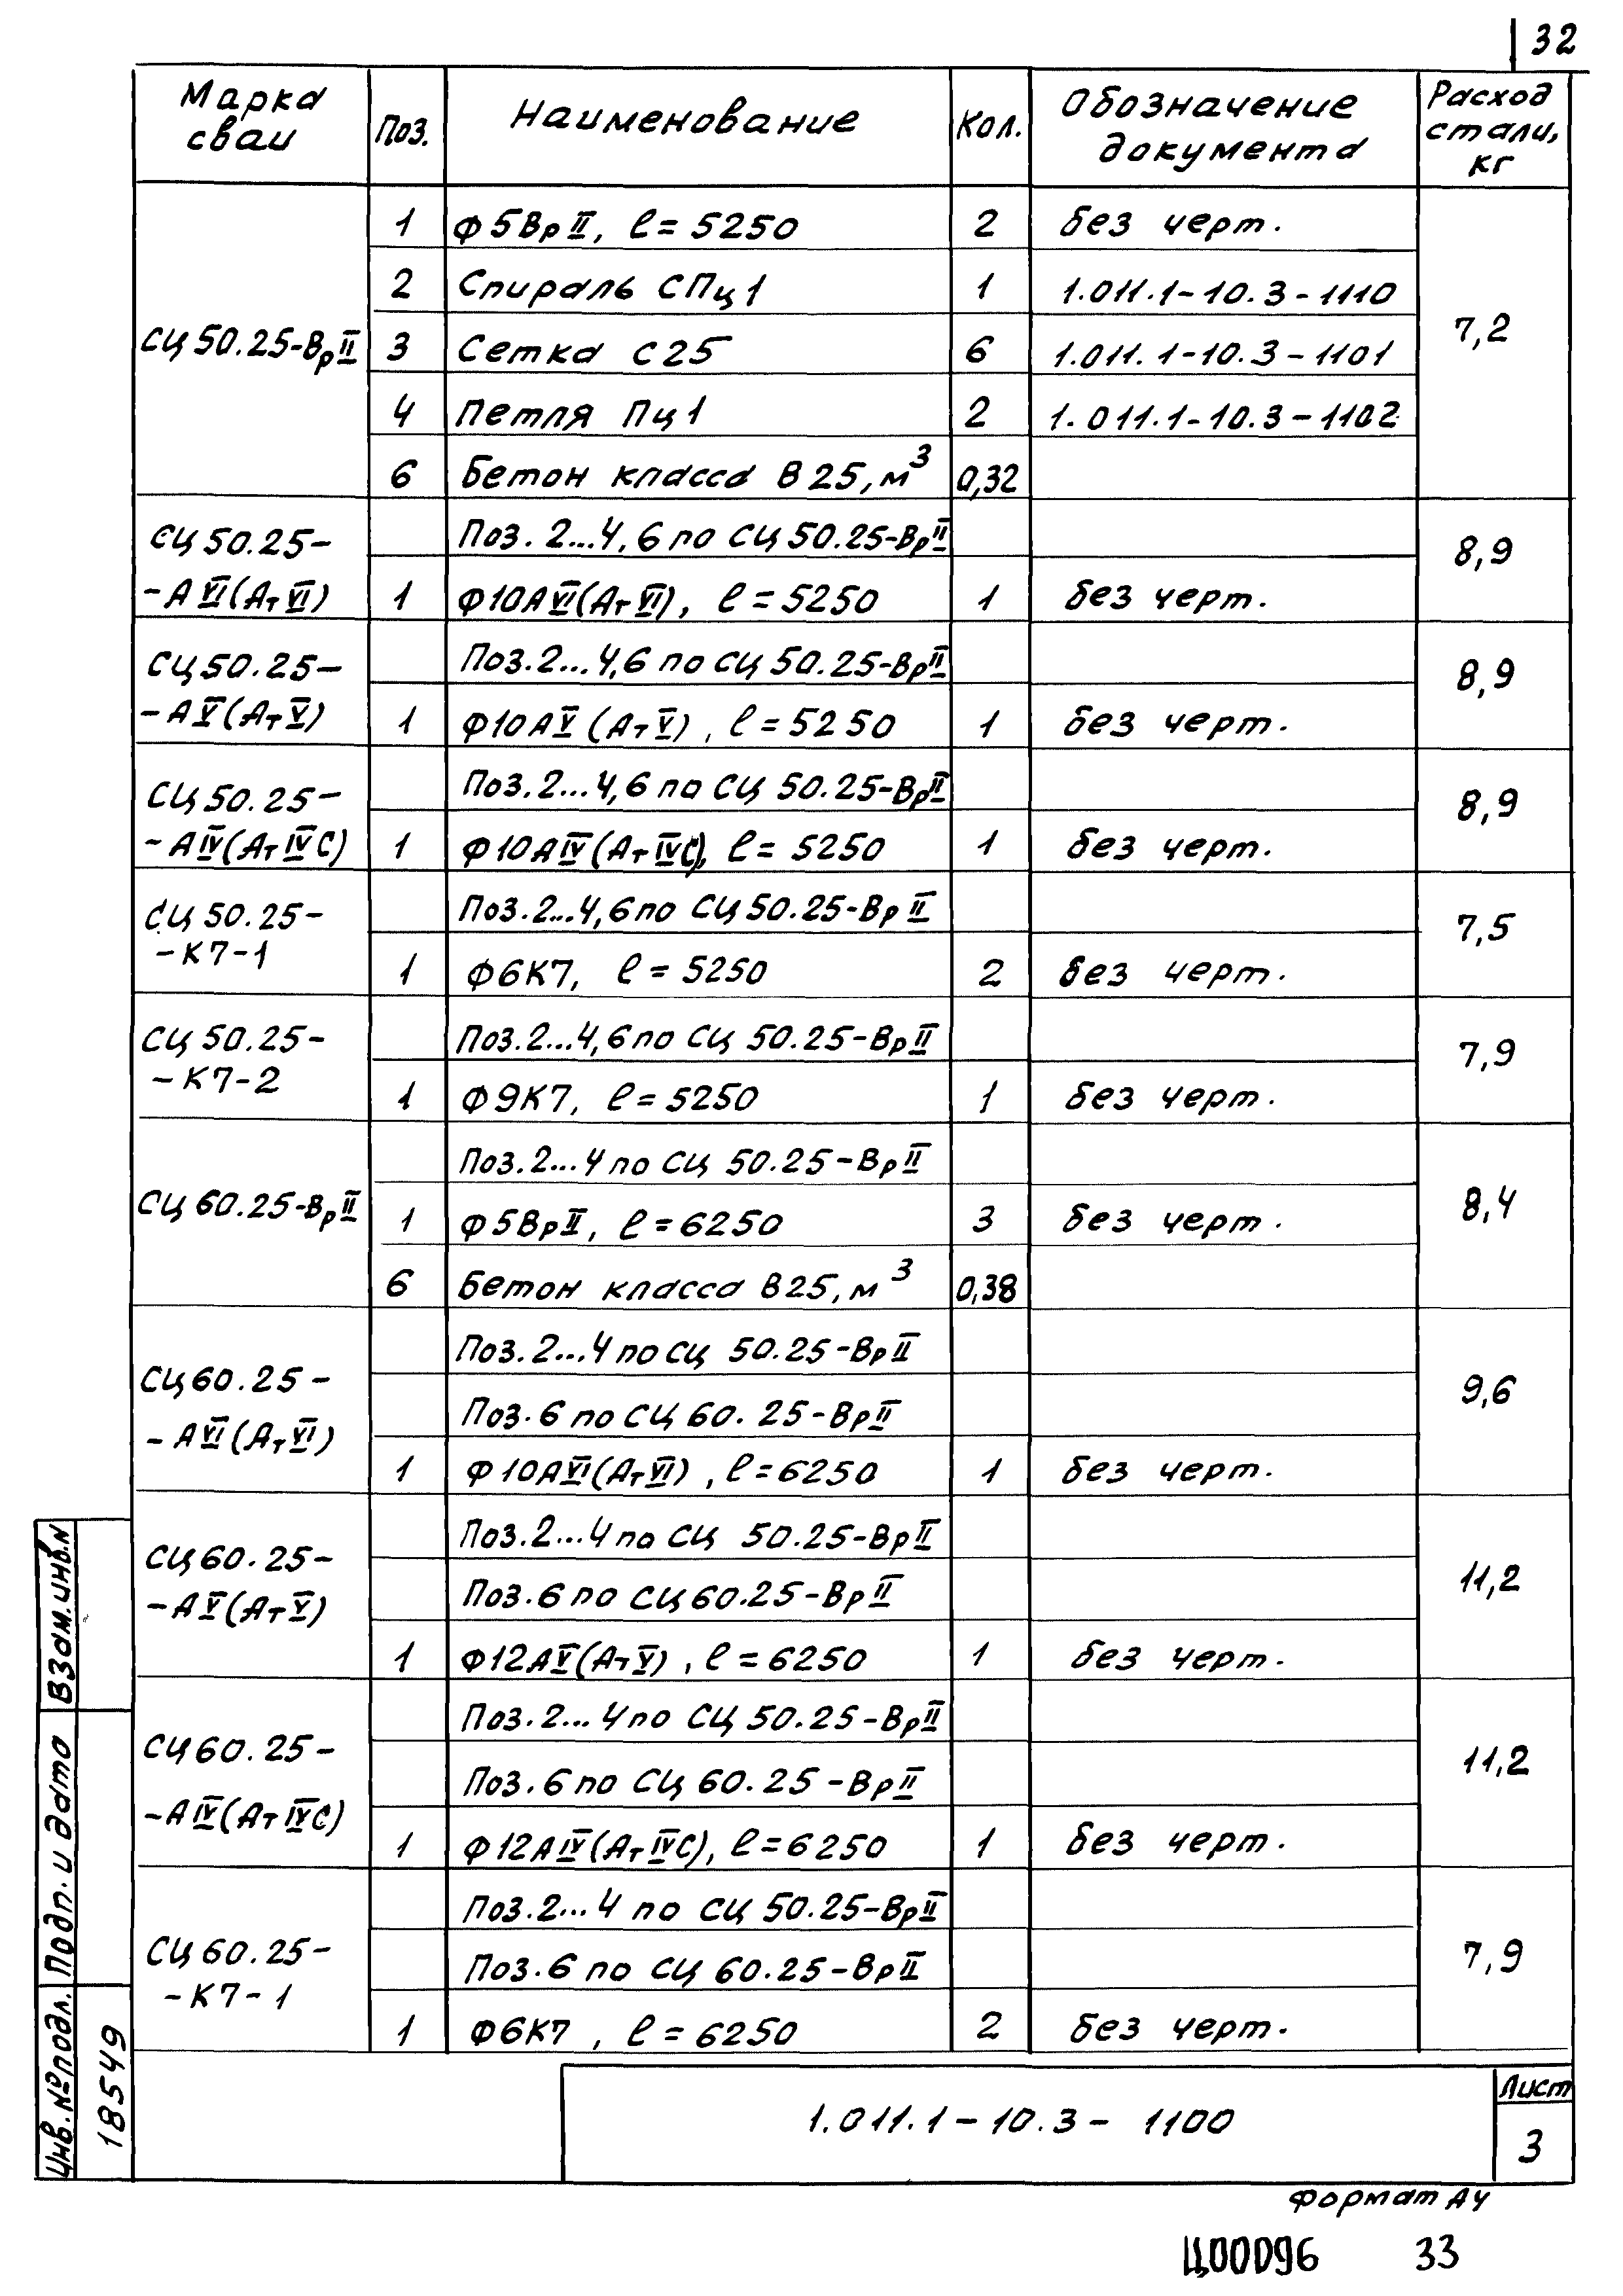 32
Марка сваи | Поз. | Наименование | Кол. | Обозначение документа | Расход стали, кг
СЦ 50.25-ВрII | 1 | Ф5ВрII, ℓ=5250 | 2 | без черт. | 7,2
2 | Спираль СПц1 | 1 | 1.011.1-10.3-1110
3 | Сетка С25 | 6 | 1.011.1-10.3-1101
4 | Петля Пц1 | 2 | 1.011.1-10.3-1102
6 | Бетон класса В25, м³ | 0,32
СЦ 50.25- | Поз. 2...4, 6 по СЦ 50.25-ВрII | 8,9
-АVI(АтVI) | 1 | Ф10АVI(АтVI), ℓ=5250 | 1 | без черт.
СЦ 50.25- | Поз. 2...4,6 по СЦ 50.25-ВрII | 8,9
-АV(АтV) | 1 | Ф10АV (АтV), ℓ=5250 | 1 | без черт.
СЦ 50.25- | Поз. 2...4,6 по СЦ 50.25-ВрII | 8,9
-АIV(АтIVС) | 1 | Ф10АIV(АтIVС), ℓ=5250 | 1 | без черт.
СЦ 50.25- | Поз. 2...4,6 по СЦ 50.25-ВрII | 7,5
-К7-1 | 1 | Ф6К7, ℓ=5250 | 2 | без черт.
СЦ 50.25- | Поз. 2...4,6 по СЦ 50.25-ВрII | 7,9
-К7-2 | 1 | Ф9К7, ℓ=5250 | 1 | без черт.
Поз. 2...4 по СЦ 50.25-ВрII
СЦ 60.25-ВрII | 1 | Ф5ВрII, ℓ=6250 | 3 | без черт. | 8,4
6 | Бетон класса В25, м³ | 0,38
Поз. 2...4 по СЦ 50.25-ВрII
СЦ 60.25- | Поз. 6 по СЦ 60.25-ВрII | 9,6
-АVI(АтVI) | 1 | Ф10АVI(АтVI), ℓ=6250 | 1 | без черт.
Поз. 2...4 по СЦ 50.25-ВрII
СЦ 60.25- | Поз. 6 по СЦ 60.25-ВрII | 11,2
-АV(АтV) | 1 | Ф12АV(АтV), ℓ=6250 | 1 | без черт.
Поз. 2...4 по СЦ 50.25-ВрII
СЦ 60.25- | Поз. 6 по СЦ 60.25-ВрII | 11,2
-АIV(АтIVС) | 1 | Ф12АIV(АтIVС), ℓ=6250 | 1 | без черт.
Поз. 2...4 по СЦ 50.25-ВрII
СЦ 60.25- | Поз. 6 по СЦ 60.25-ВрII | 7,9
-К7-1 | 1 | Ф6К7, ℓ=6250 | 2 | без черт.
Взам. инв. N
Подп. и дата
Инв. № подл.
18549
1.011.1-10.3-1100
Лист
3
Формат А4
Ц00096 33